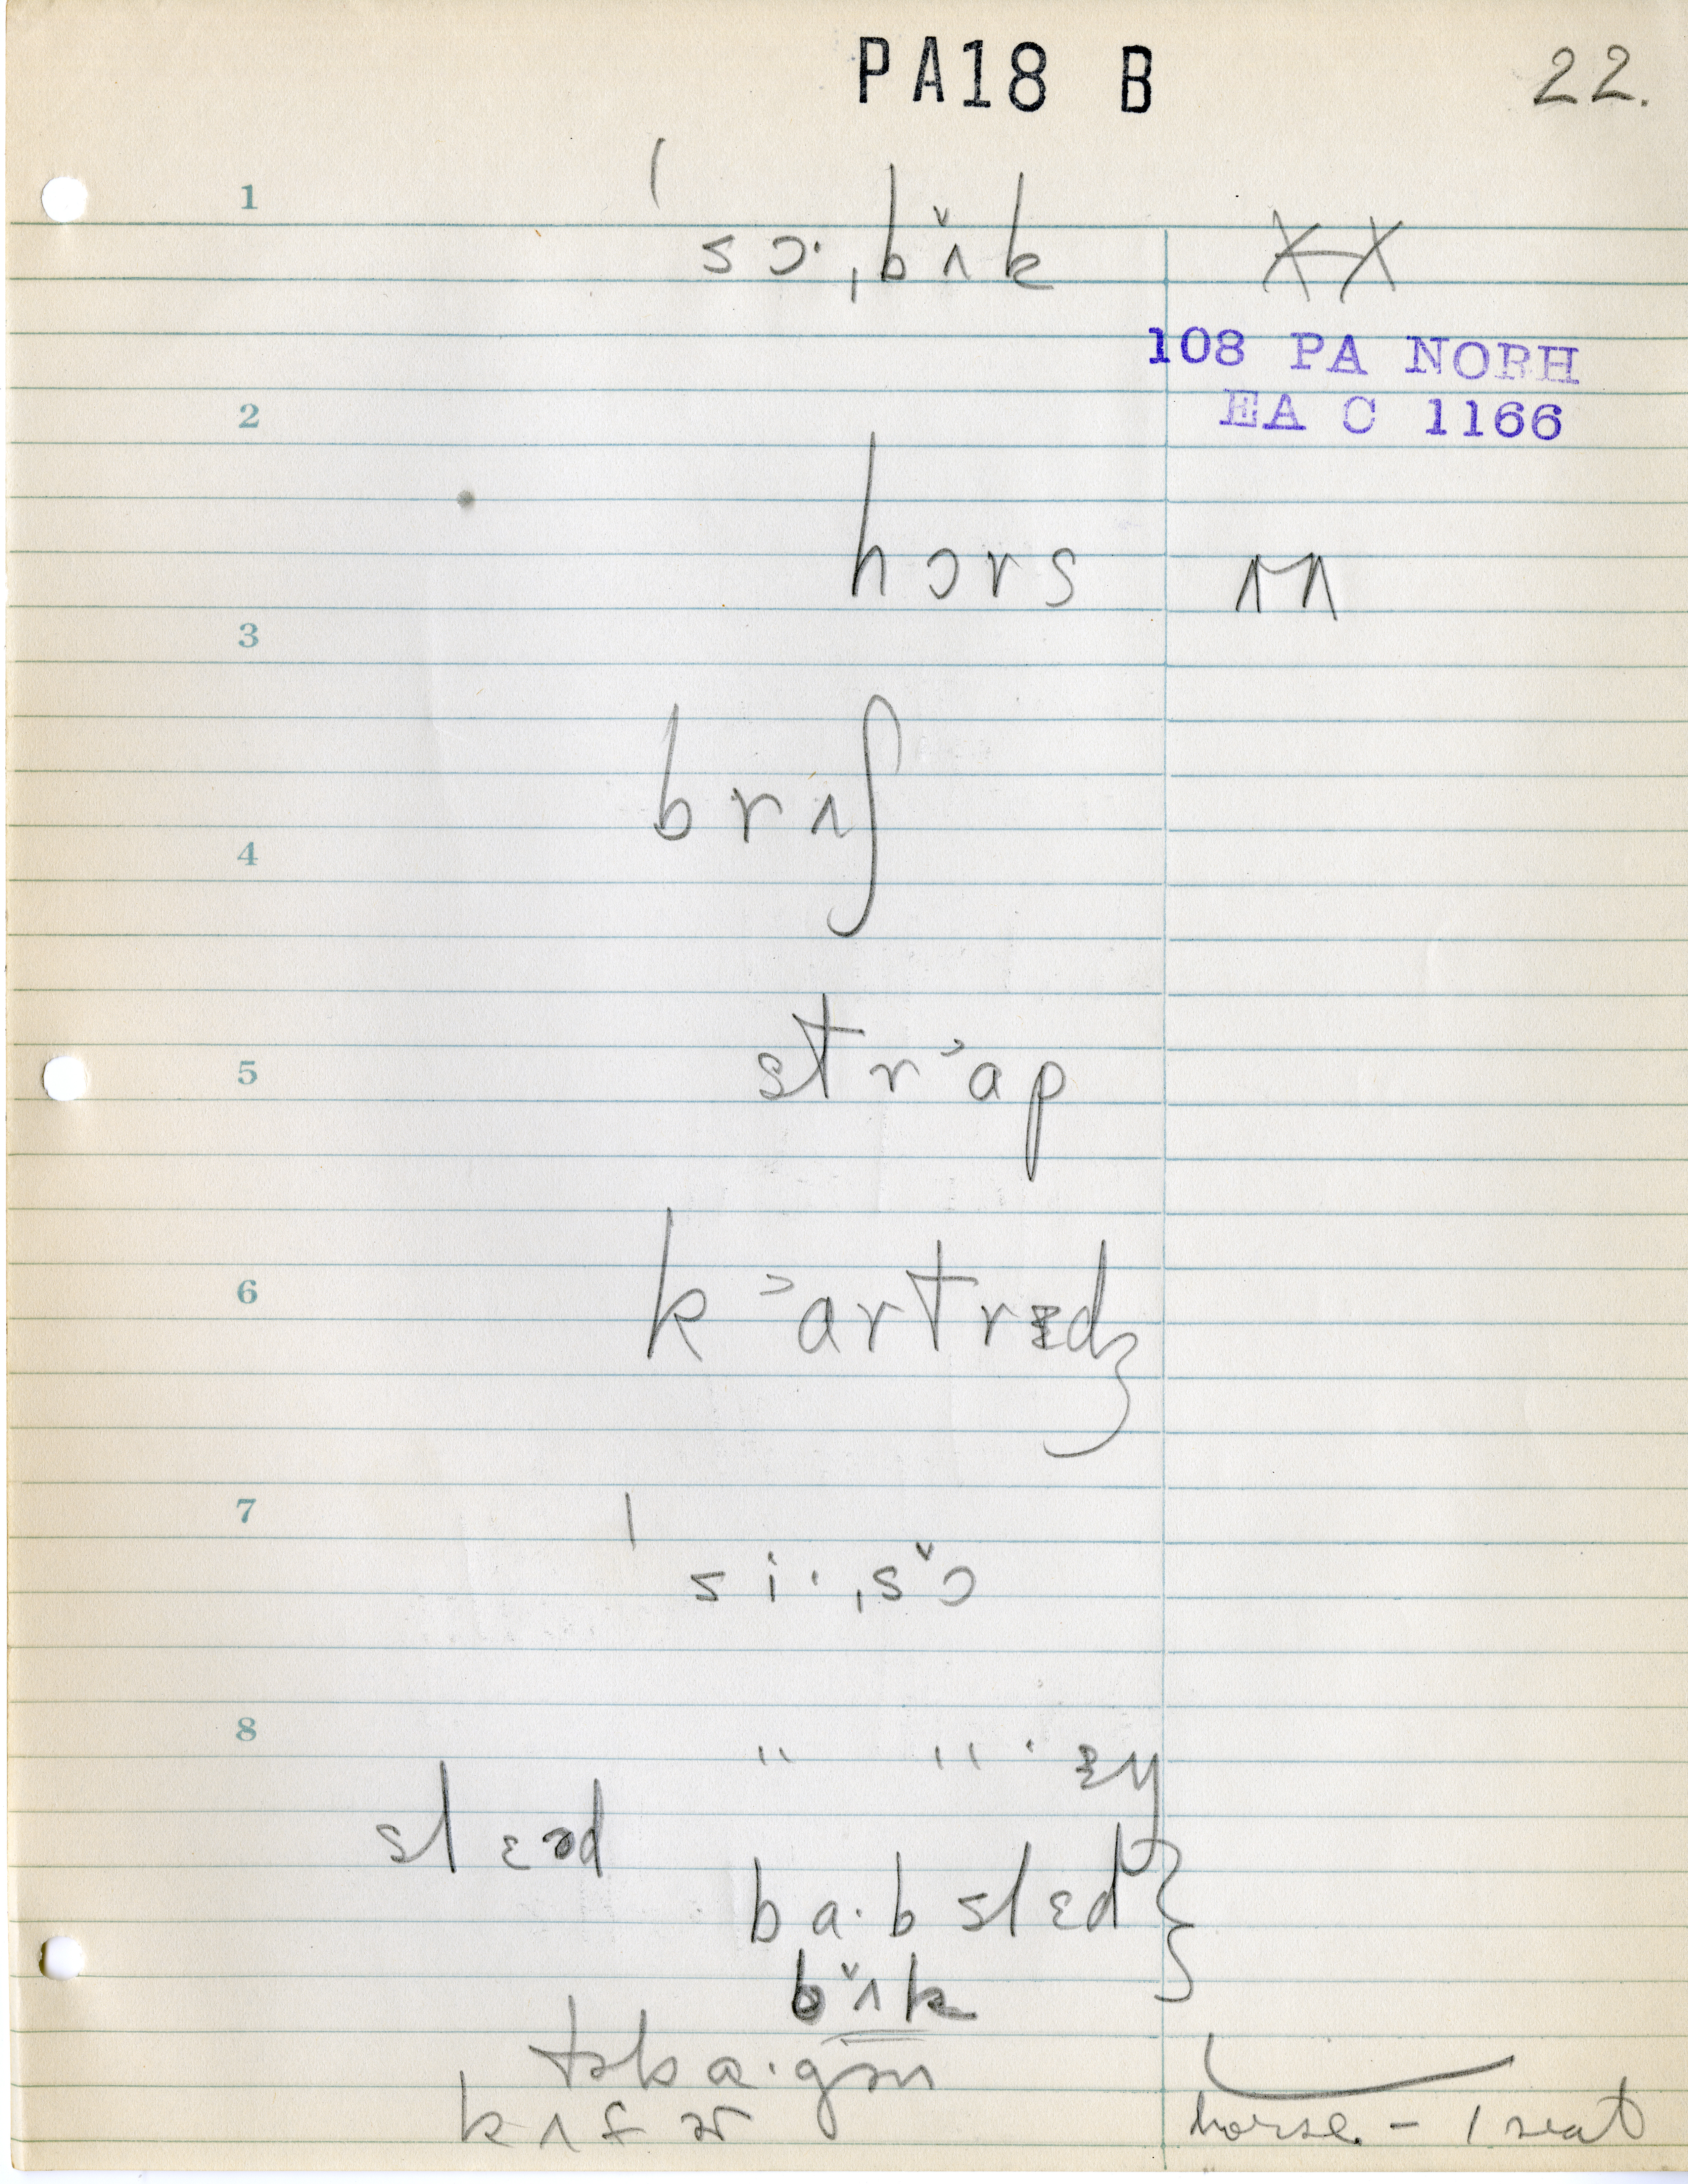 PA18 B
22.
1
ˈsɔ·ˌbˇʌk
108 PA NORH
EA C 1166
2
hɔrs
3
brʌʃ
4
5
strᵓap
6
kᵓartrɪdʒ
7
ˈsi·ˌsˇɔ
8
" " · ɪŋ
slɛəd
ba·bslɛd }
bˇʌk
təba·gən
kʌfər
horse. - 1 seat